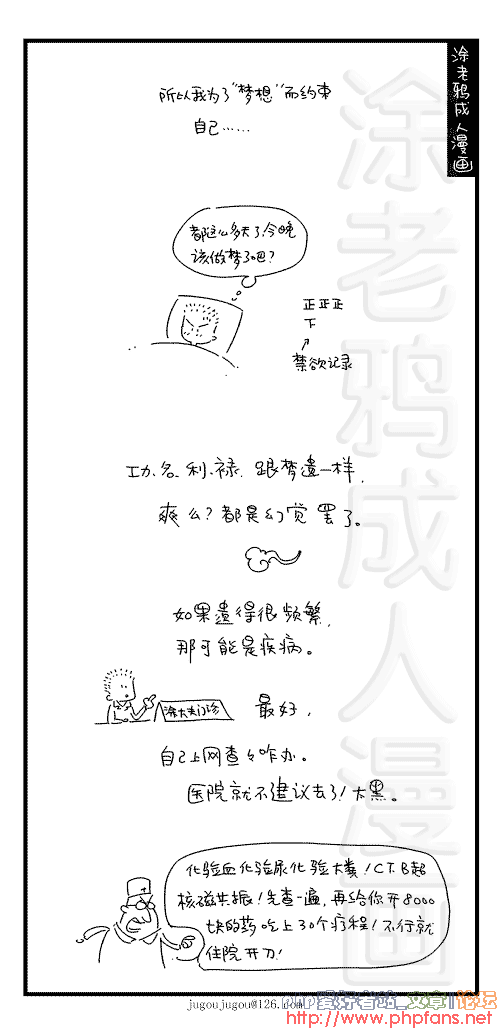 涂老鸦成人漫画
所以我为了"梦想"而约束
自己……
都这么多天了,今晚
该做梦了吧?
正正正
下
禁欲记录
功、名、利、禄,跟梦遗一样,
爽么?都是幻觉罢了。
如果遗得很频繁,
那可能是疾病。
涂大夫门诊
最好,
自己上网查查咋办。
医院就不建议去了!太黑。
化验血化验尿化验大粪!CT.B超
核磁共振!先查一遍,再给你开8000
块的药吃上30个疗程!不行就
住院开刀!
涂老鸦成人漫画
jugoujugou@126.com
php爱好者站_文章1论坛
http://www.phpfans.net